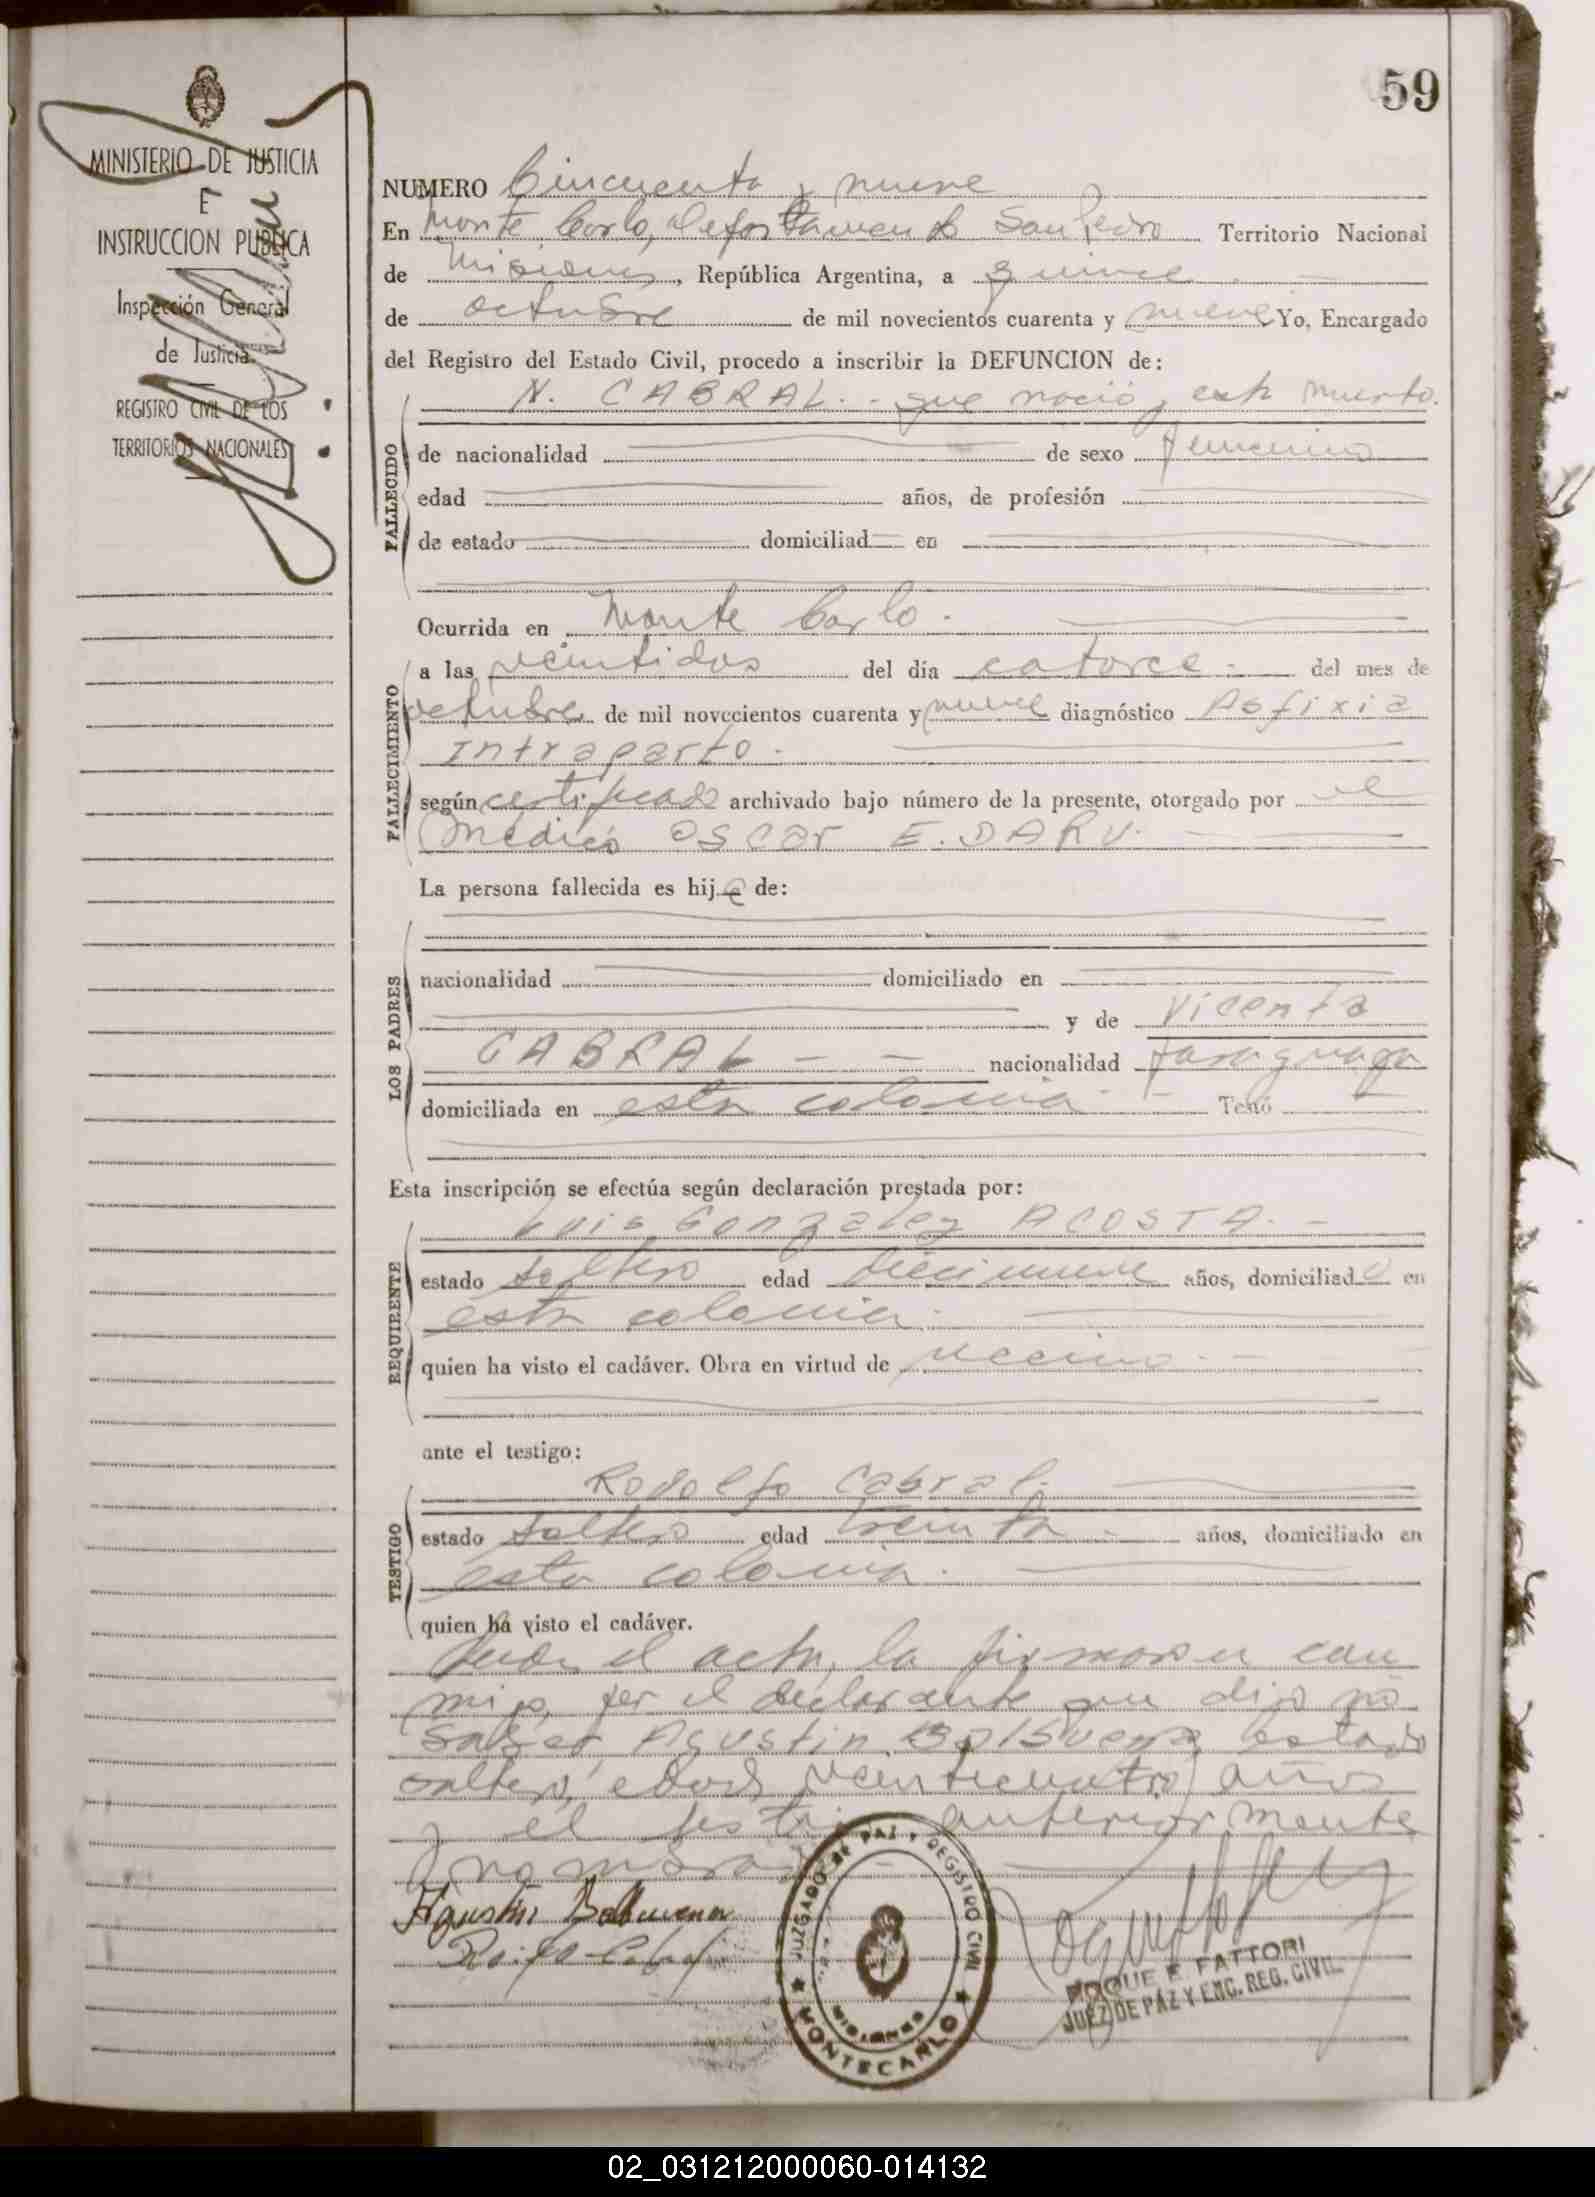 59
MINISTERIO DE JUSTICIA
E
INSTRUCCION PUBLICA
Inspección General
de Justicia
REGISTRO CIVIL DE LOS
TERRITORIOS NACIONALES
NUMERO Cincuenta y nueve
En Monte Carlo, departamento San Pedro Territorio Nacional
de Misiones, República Argentina, a quince
de octubre de mil novecientos cuarenta y nueve Yo, Encargado
del Registro del Estado Civil, procedo a inscribir la DEFUNCION de:
N. CABRAL.- que nació muerto.
FALLECIDO
de nacionalidad de sexo femenino
edad años, de profesión
de estado domiciliad en
Ocurrida en Monte Carlo.
FALLECIMIENTO
a las veintidos del día catorce.- del mes de
octubre de mil novecientos cuarenta y nueve diagnóstico Asfixia
Intraparto.
según certificado archivado bajo número de la presente, otorgado por el
médico Oscar E. DARU.
La persona fallecida es hija de:
LOS PADRES
nacionalidad domiciliado en
y de Vicenta
CABRAL - - nacionalidad paraguaya
domiciliada en esta colonia.- Testó
Esta inscripción se efectúa según declaración prestada por:
REQUIRENTE
Luis Gonzalez ACOSTA.-
estado soltero edad diecinueve años, domiciliado en
esta colonia.
quien ha visto el cadáver. Obra en virtud de vecino.-
ante el testigo:
TESTIGO
Rodolfo Cabral.
estado soltero edad treinta.- años, domiciliado en
esta colonia.
quien ha visto el cadáver.
el acta, la firmaron con
migo, por el declarante que dijo no
saber, Agustin Balbuena, estado
soltero, edad veinticuatro años
y el testigo anteriormente
nombrado
Agustin Balbuena
JUZGADO DE PAZ Y REGISTRO CIVIL
MISIONES
MONTECARLO
ROQUE E. FATTORI
JUEZ DE PAZ Y ENC. REG. CIVIL
02_031212000060-014132